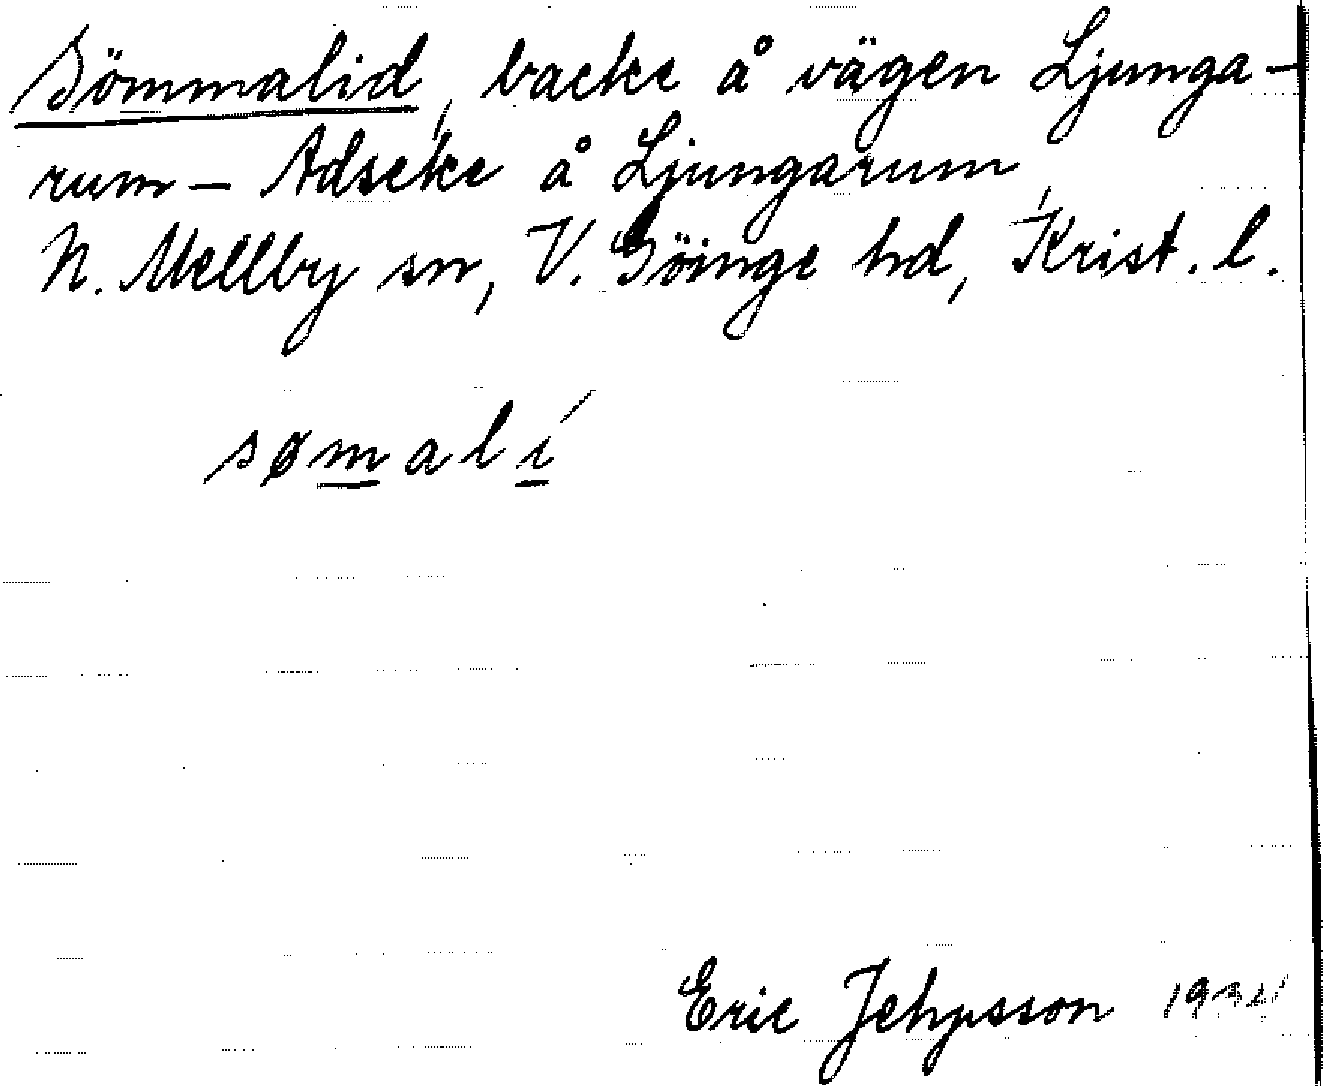 Sömmalid, backe å vägen Ljunga-
rum - Adseke å Ljungarum,
N. Mellby sn, V. Göinge hd, Krist. l.
sømalí
Eric Jehpsson 1934